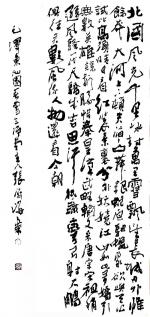 北國風光千里冰封萬里雪飄望長城内外惟
餘莽莽大河上下頓失滔滔山舞銀蛇原馳蠟象欲與天公
試比高須晴日看紅裝素裹分外妖嬈江山如此多嬌引無
數英雄競折腰惜秦皇漢武略輸文采唐宗宋祖稍
遜風騷一代天驕成吉思汗只識彎弓射大鵰
俱往矣數風流人物還看今朝
毛澤東沁園春雪